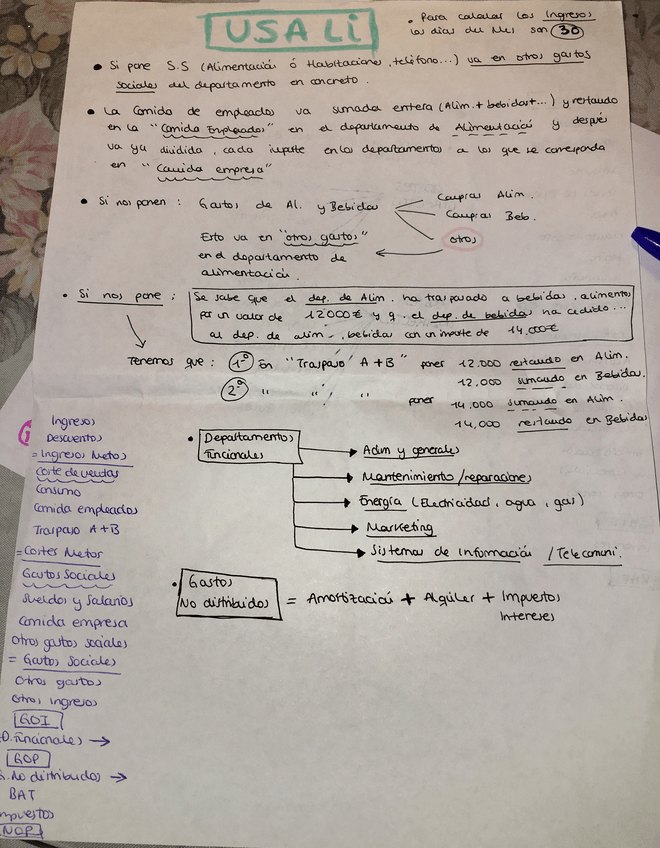 USALi
• Para calcular los Ingresos
los días del Mes son 30
• Si pone S.S (Alimentación ó Habitaciones, teléfono...) va en otros gastos
sociales del departamento en concreto.
• La Comida de empleados va sumada entera (Alim. + bebidas + ...) y restando
en la "Comida Empleados" en el departamento de Alimentación y después
va ya dividida, cada importe en los departamentos a los que se corresponda
en "Comida empresa"
• Si nos ponen: Gastos de Al. y Bebidas
Compras Alim.
Compras Beb.
otros
Esto va en "otros gastos"
en el departamento de
alimentación.
• Si nos pone:
Se sabe que el dep. de Alim. ha traspasado a bebidas, alimentos
por un valor de 12000€ y q. el dep. de bebidas ha cedido...
al dep. de alim., bebidas con un importe de 14,000€
Tenemos que: 1º En "Traspaso A+B" poner 12.000 restando en Alim.
12,000 sumando en Bebidas.
2º " " " poner 14,000 sumando en Alim.
14,000 restando en Bebidas
Ingresos
Descuentos
= Ingresos Netos
Coste de ventas
Consumo
Comida empleados
Traspaso A+B
= Costes Netos
Gastos Sociales
Sueldos y Salarios
Comida empresa
Otros gastos sociales
= Gastos Sociales
Otros gastos
Otros ingresos
GOI
D. Funcionales →
GOP
G. No distribuidos →
BAT
Impuestos
NOP
• Departamentos
Funcionales
Adm y generales
Mantenimiento/reparaciones
Energía (Electricidad, agua, gas)
Marketing
Sistemas de información / Telecomuni.
• Gastos
No distribuidos = Amortización + Alquiler + Impuestos
Intereses